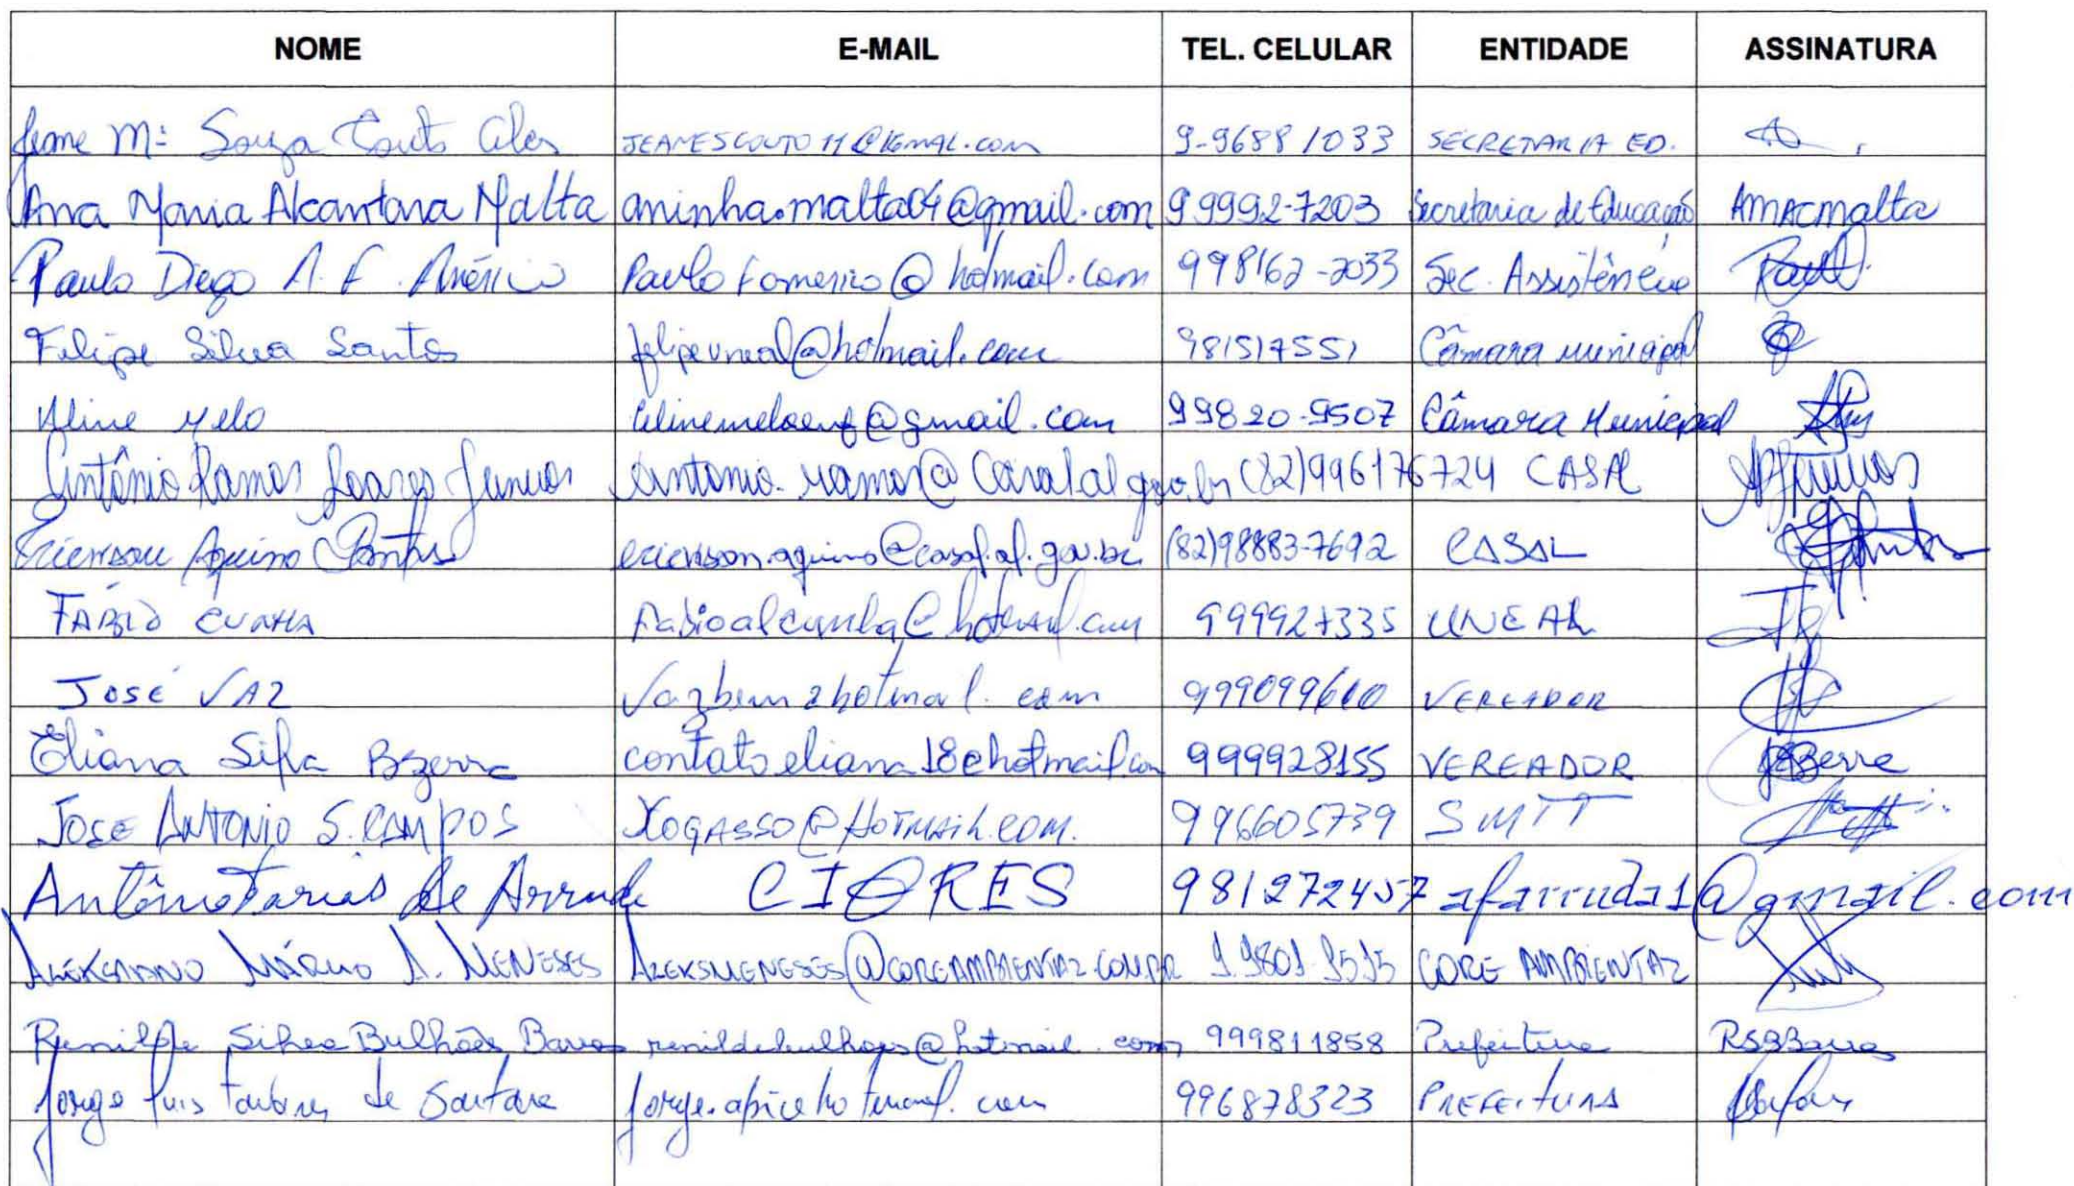 NOME E-MAIL TEL. CELULAR ENTIDADE ASSINATURA
Jeane Mª Souza Couto JEANESCOUTO11@ 9-9688 1033 SECRETARIA ED.
Ana Maria Alcantara Malta aninha.malta04@gmail.com 9 9992-7203 Secretaria de Educação AMACMalta
Paulo Diego A. F. Américo 998162-2033 Sec. Assistência
Felipe Silva Santos felipeuneal@hotmail.com 981517551 Câmara Municipal
Aline Melo alinemeloenf@gmail.com 99820-9507 Câmara Municipal
Antônio Ramos Soares Junior (82)996176724 CASAL
Erickson Aquino Santos erickson.aquino@casal.al.gov.br (82)98883-7692 CASAL
FABIO CUNHA fabioalcunha@hotmail.com 999927335 UNEAL
JOSÉ VAZ 999099610 VEREADOR
Eliana Silva Bezerra contatoeliana18@hotmail.com 999928155 VEREADOR
JOSE ANTONIO S. CAMPOS XOGASSO@HOTMAIL.COM. 996605739 SMTT
Antônio Farias de Arruda 981272457 afarruda1@gmail.com
MÁRLIO A. MENESES ALEKSMENESES@COREAMBIENTAL.COM.BR CORE AMBIENTAL
Renilde Silva Bulhões Barros renildebulhoes@hotmail.com 999811858 Prefeitura RSBBarros
Jorge Luis de Santana 996878323 PREFEITURA